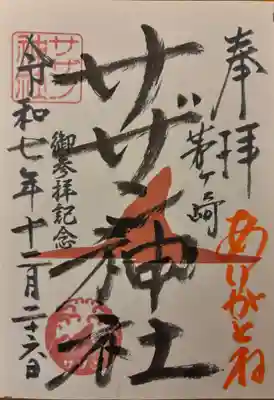 奉拝
茅ヶ崎
ありがとね
サザン神社
御参拝記念
令和七年十二月二十六日
サザン
神社